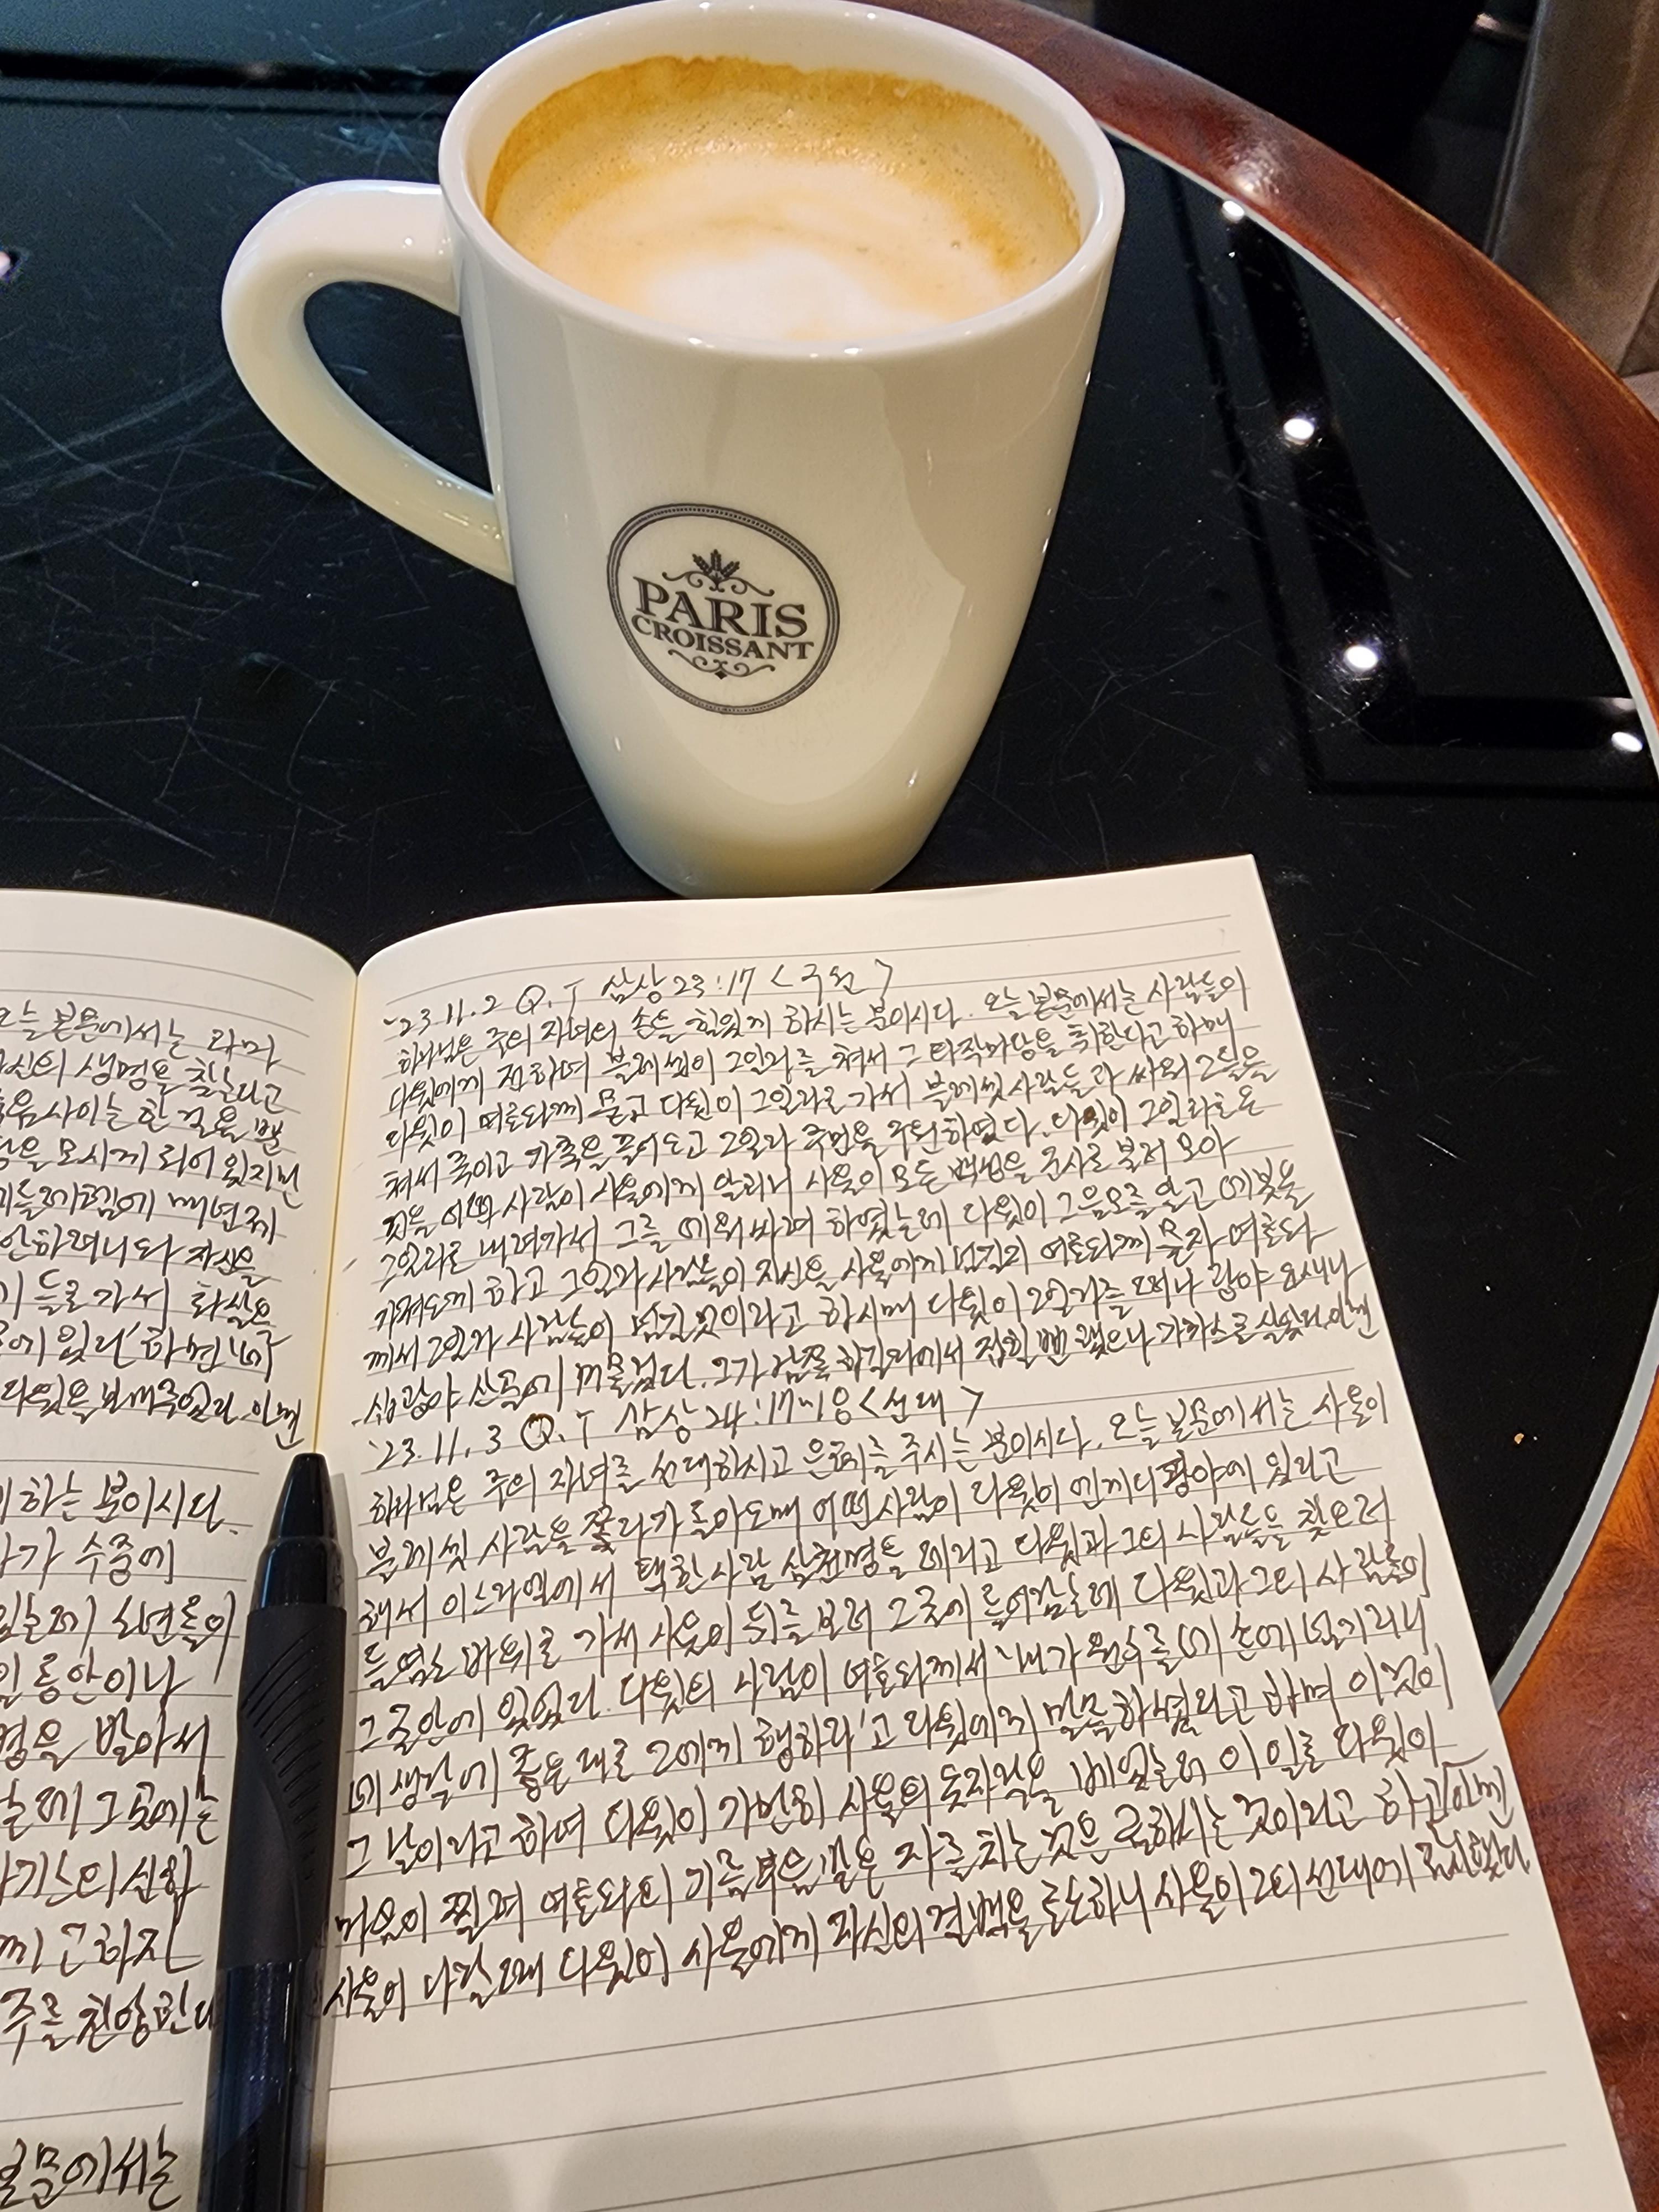 PARIS
CROISSANT
'23.11.2 Q.T 삼상 23:17 <구원>
하나님은 주의 자녀의 손을 힘있게 하시는 분이시다. 오늘 본문에서는 사람들이
다윗에게 전하며 블레셋이 그일라를 쳐서 그 타작마당을 취한다고 하매
다윗이 여호와께 묻고 다윗이 그일라로 가서 블레셋 사람들과 싸워 그들을
쳐서 죽이고 가축을 끌어오고 그일라 주민을 구원하였다. 다윗이 그일라로 온
것을 어떤 사람이 사울에게 알리니 사울이 모든 백성을 군사로 불러 모아
그일라로 내려가서 그를 에워싸려 하였는데 다윗이 그 음모를 알고 에봇을
가져오게 하고 그일라 사람들이 자신을 사울에게 넘길지 여호와께 묻자 여호와
께서 그일라 사람들이 넘길것이라고 하시매 다윗이 그일라를 떠나 광야 요새나
십광야 산골에 머물렀다. 그가
'23.11.3 Q.T 삼상 24:17 <선대>
하나님은 주의 자녀를 선대하시고 은혜를 주시는 분이시다. 오늘 본문에서는 사울이
블레셋 사람을 쫓다가 돌아오매 어떤 사람이 다윗이 엔게디 광야에 있다고
해서 이스라엘에서 택한 사람 삼천명을 데리고 다윗과 그의 사람들을 찾으러
들염소 바위로 가서 사울이 뒤를 보러 그 곳에 들어갔는데 다윗과 그의 사람들이
그 굴안에 있었다. 다윗의 사람이 여호와께서 '내가 원수를 네 손에 넘기리니
네 생각에 좋은 대로 그에게 행하라'고 다윗에게 말씀하셨다고 하며 이것이
그 날이라고 하며 다윗이 가만히 사울의 옷자락을 베었는데 이 일로 다윗이
마음이 찔려 여호와의 기름부음 받은 자를 치는 것은 금하시는 것이라고 하고 아멘
사울이 나갈 때 다윗이 사울에게 자신의 결백을 호소하니 사울이 그의 선대에
오늘 본문에서는 라마
자신의 생명을 찾는다고
한 걸음 뿐
들로 가서 화살을
다윗을 보내주었다. 아멘
하는 분이시다.
동안이나
명을 받아서
그곳에는
주를 찬양한다
본문에서는